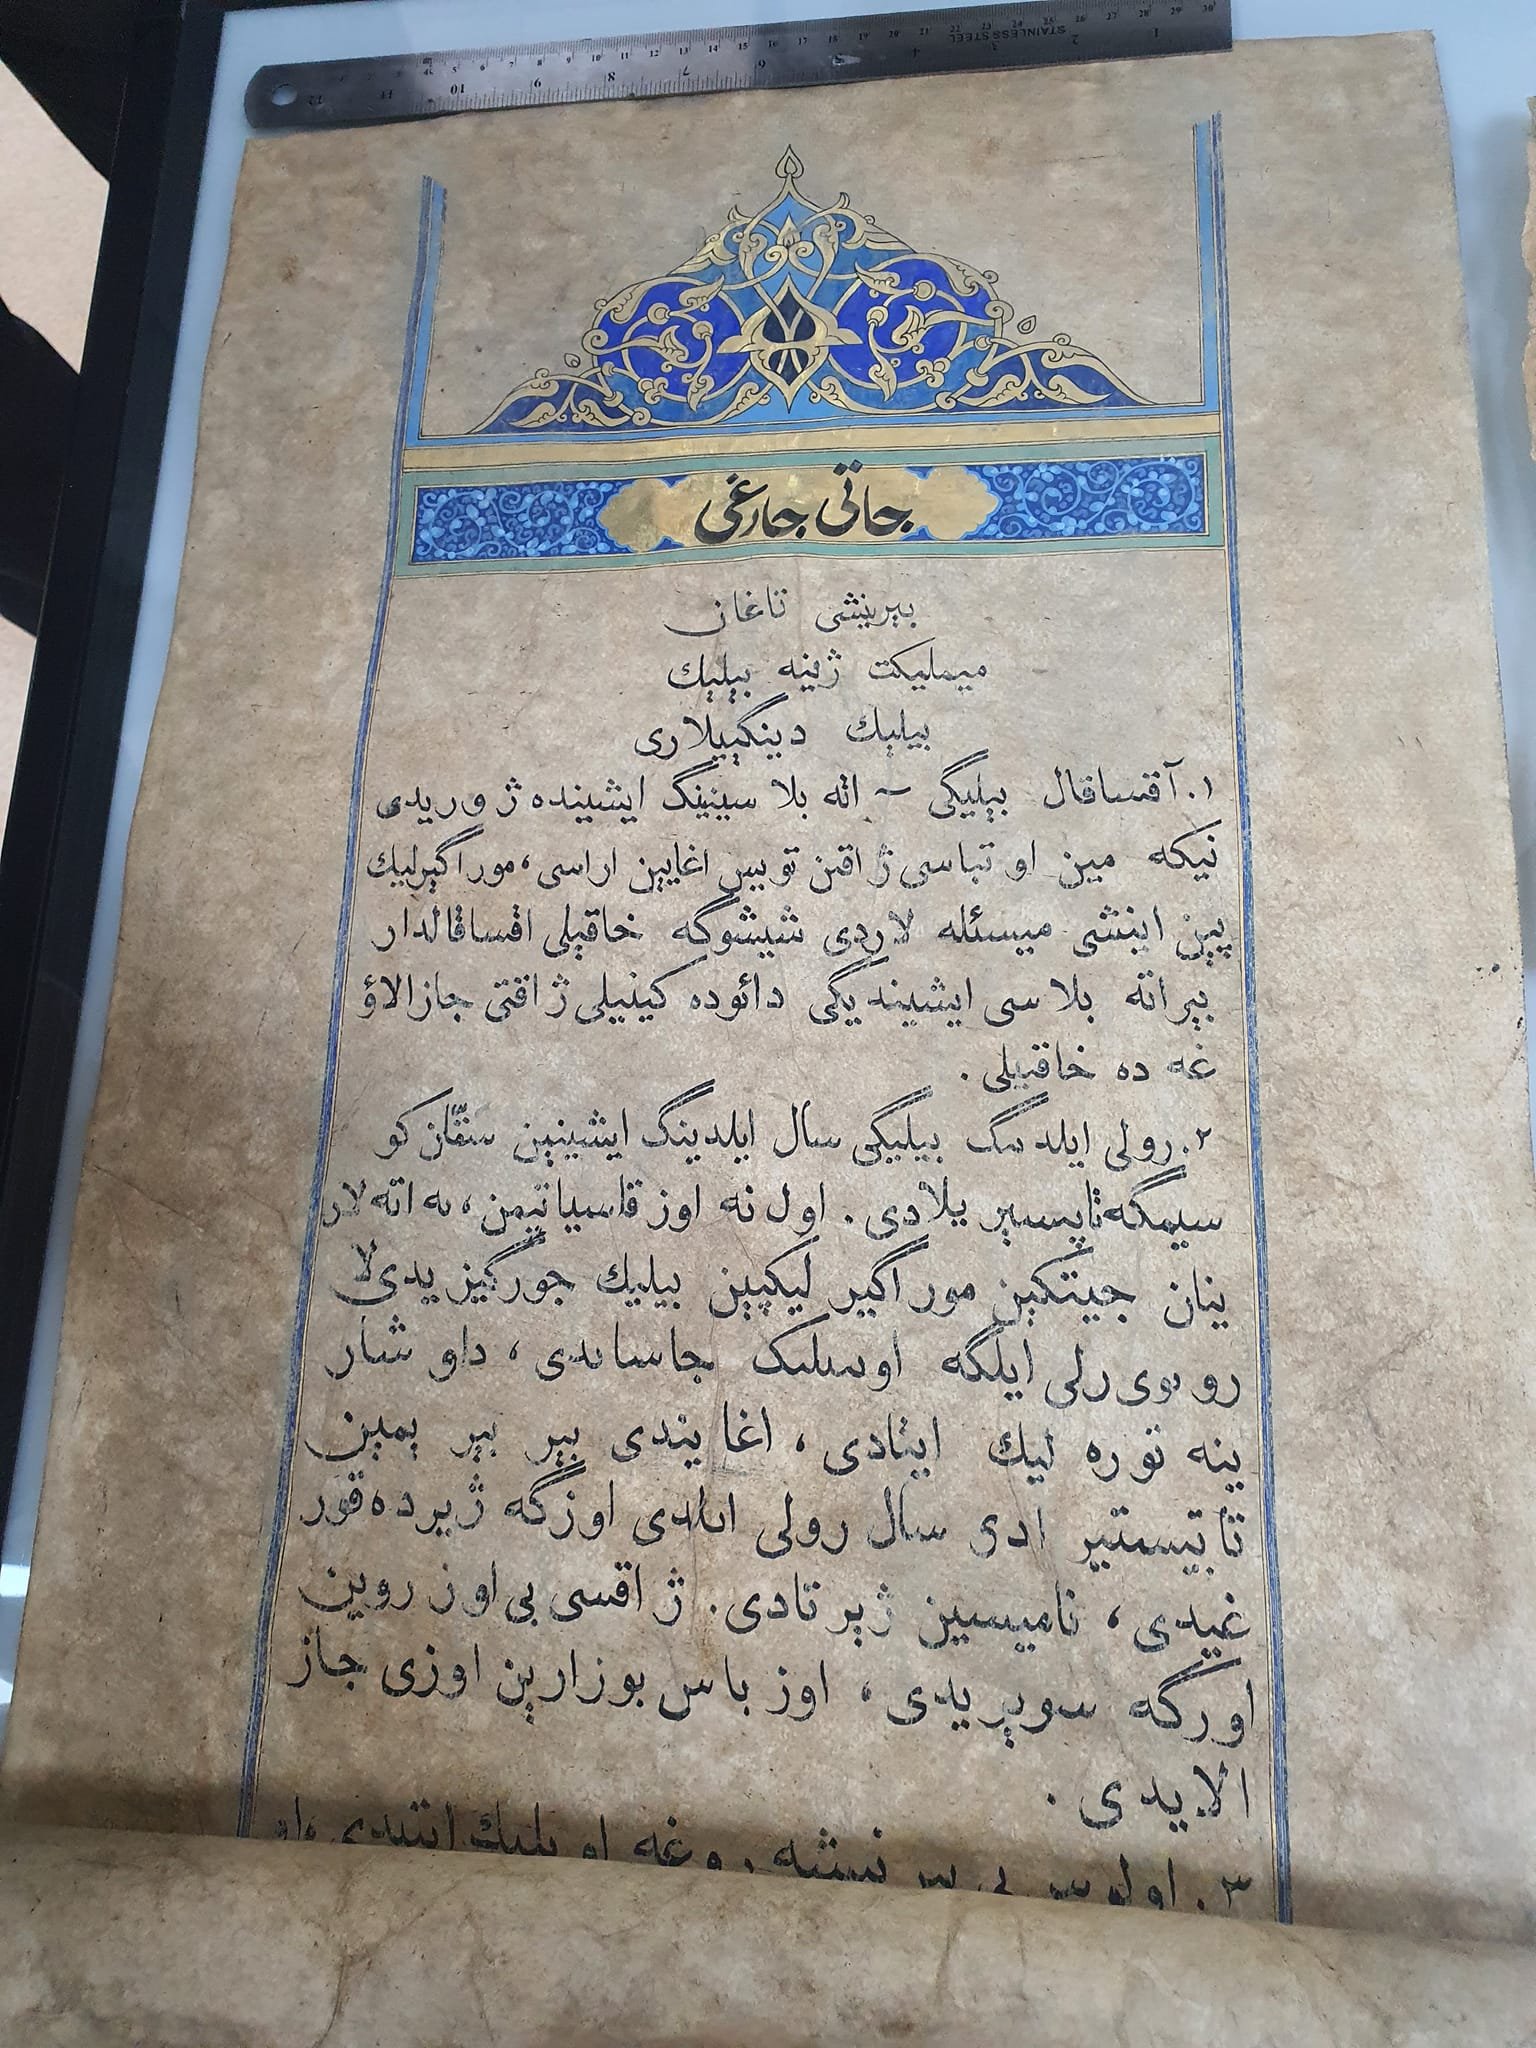 جاتی جارغی
بیرینشی تاغان
میملیکت ژینه بیلیك
بیلیك دینگییلاری
۱. آقساقال بیلیگی ~ اته بلا سینینگ ایشینده ژ وریدی
نیکه مین او تباسی ژ اقن تویس اغایین اراسی، مور اگیرلیك
پین اینشی میسئله لاردی شیشوگه خاقیلی اقساقالدار
بیر اته بلا سی ایشیند یگی دائوده کینیلی ژ اقتی جاز الاؤ
غه ده خاقیلی .
۲. رولی ایلد سگ بیلیگی سال ایلدینگ ایشینین سقان کو
سیمگه تاپسیر یلادی . اول نه اوز قاسیاتیمن، به اته لار
ینان جیتکین مور اگیر لیکپین بیلیك جورگیز یدی لا
رو بوی رلی ایلگه اوسلیک جاساندی، داو شار
ینه توره لیك ایتادی، اغا یندی بیر بیر یمین
تاتیستیر ادی سال رولی ایلدی اوزگه ژیرده قور
غیدی، نامیسین ژیر تادی. ژ اقسی بی اوز روین
اورگه سویر یدی، اوز باس بوزارین اوزی جاز
الایدی .
۳. اولوس بی بیر نیشه روغه او بلیك ایتیدی، او